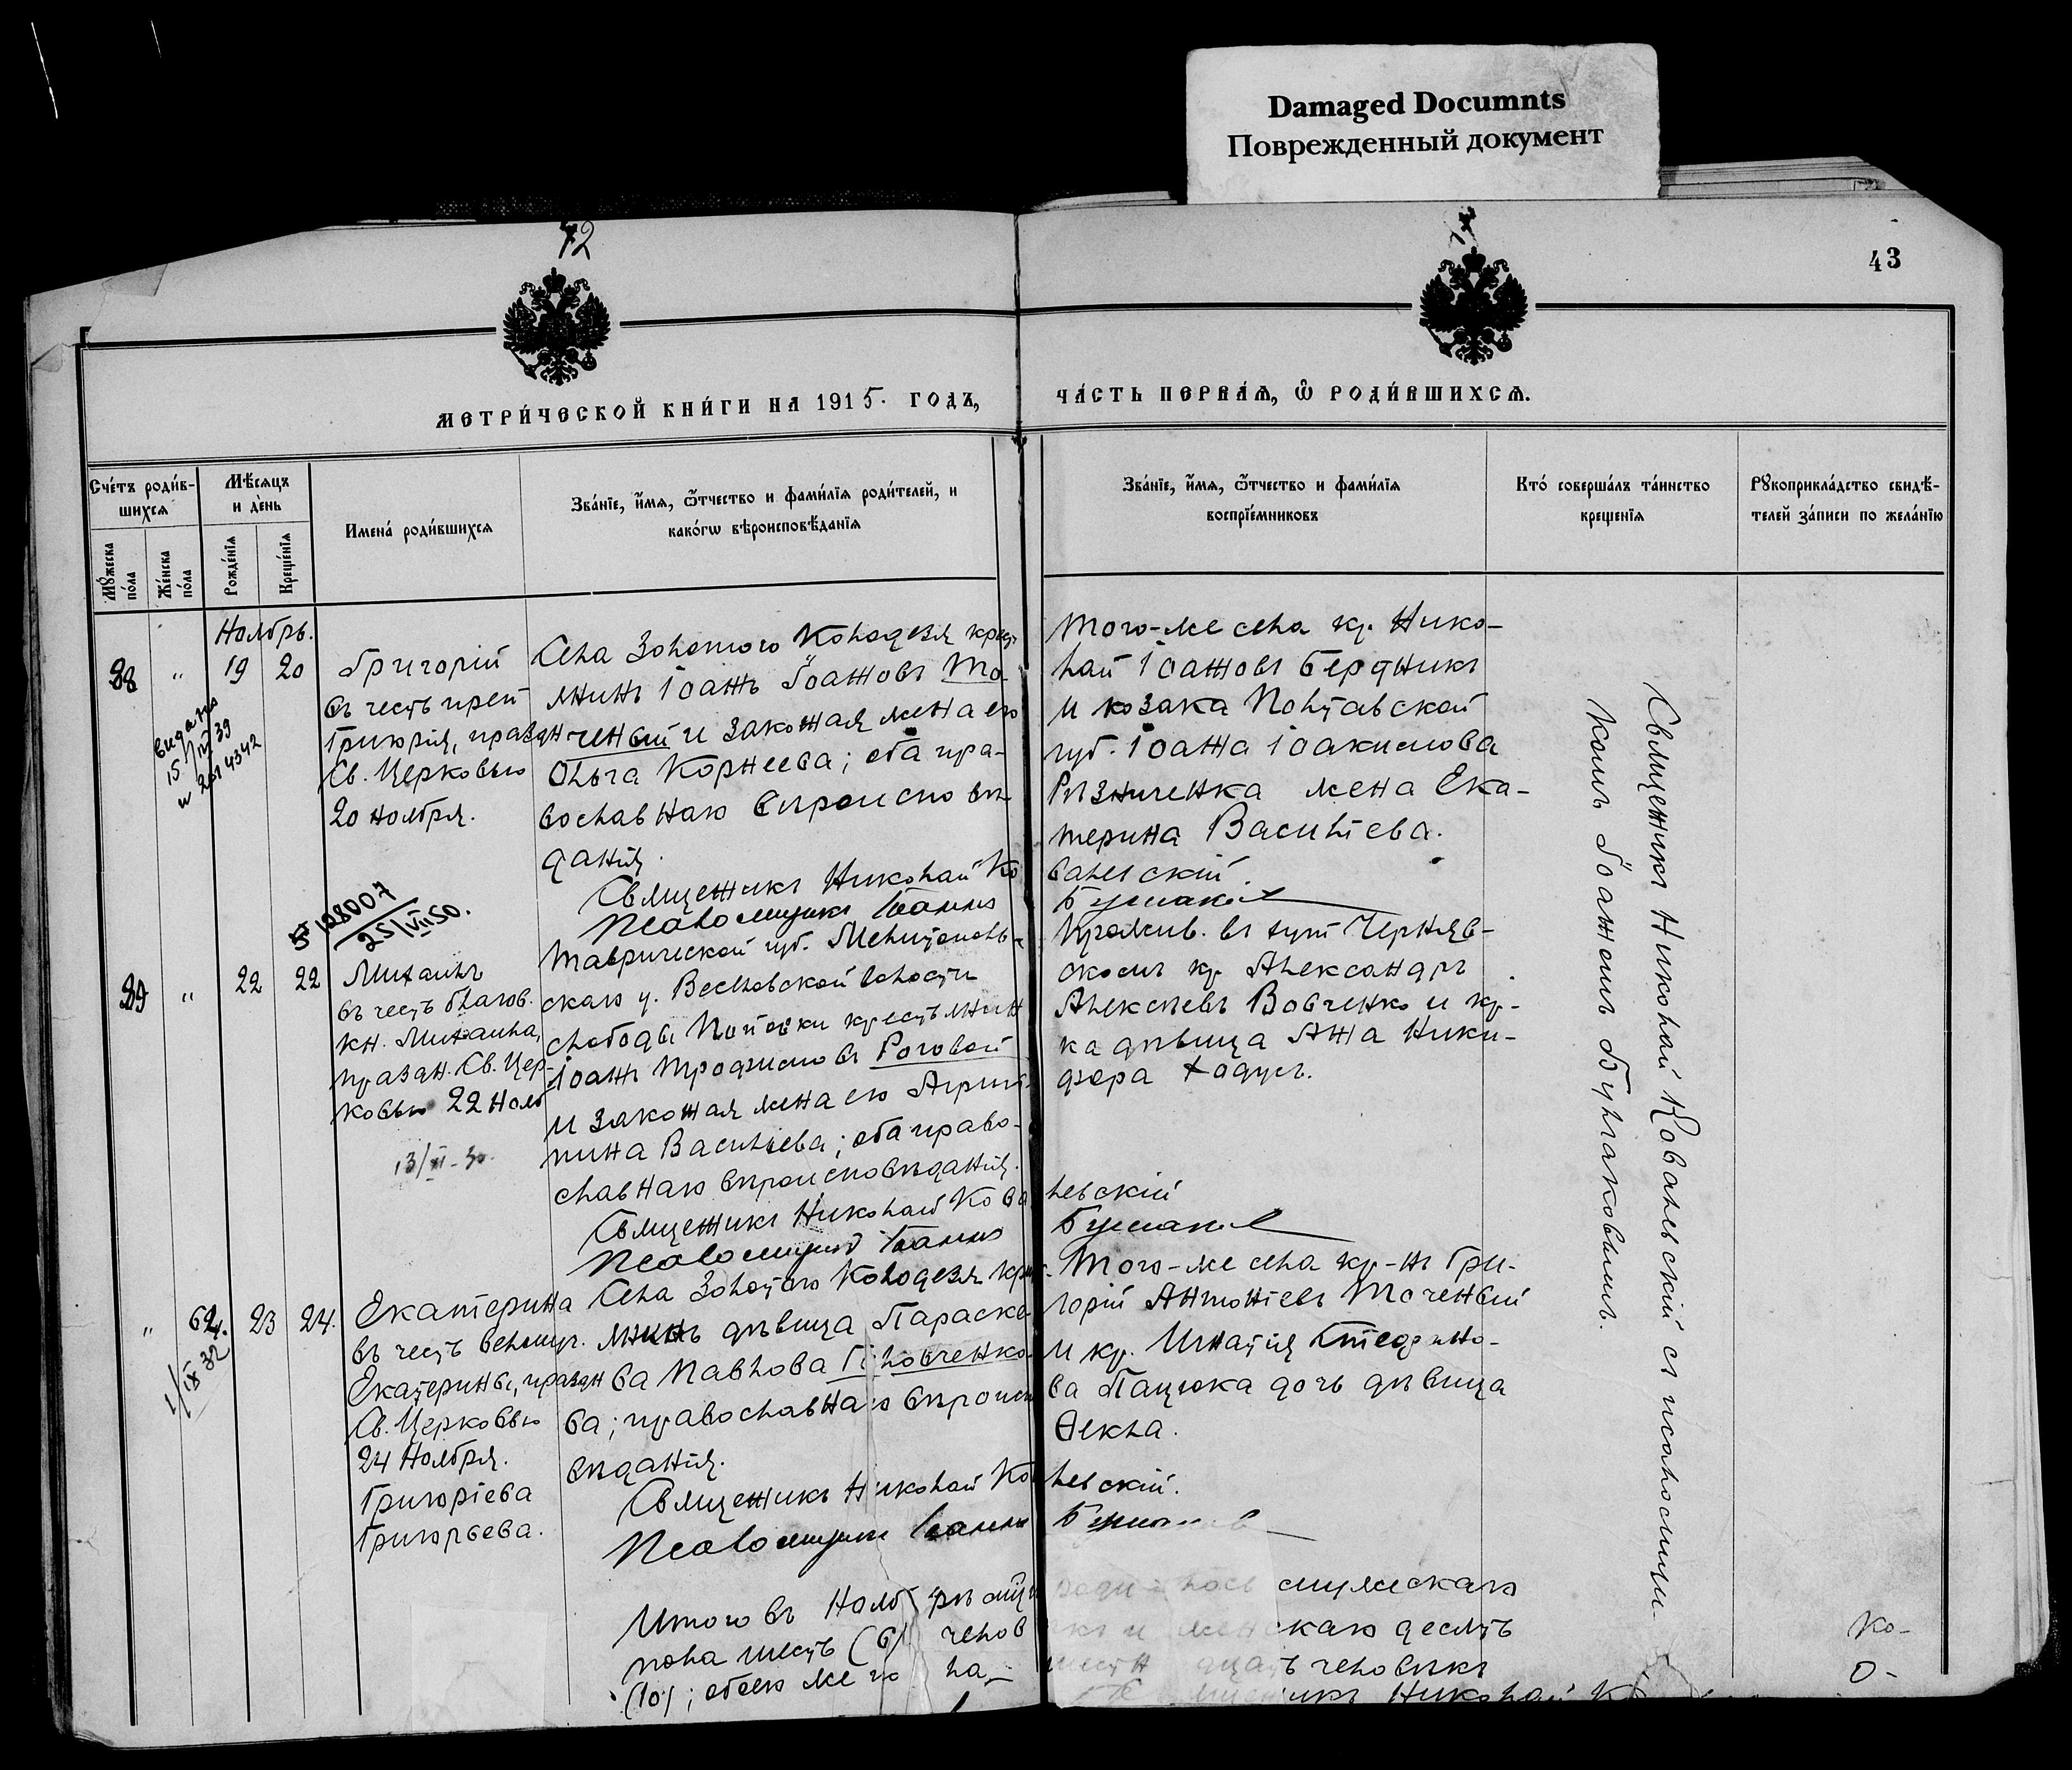 Damaged Documnts
Поврежденный документ
42
43
МЕТРИ́ЧЕСКОЙ КНИ́ГИ НА 1915. ГОДЪ,
ЧА́СТЬ ПЕРВА́Я, Ѿ РОДИ́ВШИХСЯ.
Сче́тъ роди́в-
шихся
Мꙋ́жеска по́ла
Же́нска по́ла
Мѣ́сяцъ
и де́нь
Рожде́нїя
Креще́нїя
Имена́ роди́вшихся
Зва́нїе, и́мя, ѻ́тчество и фами́лїя роди́телей, и
како́гѡ вѣроисповѣ́данїя
Зва́нїе, и́мя, ѻ́тчество и фами́лїя
воспрїе́мниковъ
Кто́ соверша́лъ та́инство
креще́нїя
Рꙋкоприкла́дство свидѣ́-
телей за́писи по жела́нїю
Ноябрь.
38 " 19 20
видано
15/IV 39
Григорій
въ честь преп
Григорія, празdн
Св. Церковью
20 ноября.
Села Золотого Колодезя крест
янинъ Іоаннъ Іоанновъ То-
ченый и законная жена его
Ольга Корнеева; оба пра-
вославнаго вѣроисповѣ-
данія.
Священникъ Николай Ко
Псаломщикъ Іоаннъ
того-же села кр. Нико-
лай Іоанновъ Бердникъ
и козака Полтавской
губ. Іоанна Іоакимова
Рѣзниченка жена Ека-
терина Васильева.
вальскій.
128007
25/VII 50.
39 " 22 22
Михаилъ
въ честь благов.
кн. Михаила,
праздн. Св. Цер-
ковью 22 Нояб
13/XI-30.
Таврической губ. Мелитополь-
скаго у. Веселовской волости
слободы крестьянин
Іоаннъ Трофимовъ Роговой
и законная жена его Агрип-
пина Васильева; оба право-
славнаго вѣроисповѣданія.
Священникъ Николай Кова
Псаломщикъ Іоаннъ
Прожив. въ хут Черняв-
скомъ кр Александръ
Алексѣевъ Вовченко и кр-
ка дѣвица Анна Ники-
фора Хадусъ.
левскій
" 62. 23 24.
1/IX 32
Екатерина
въ честь великомуч.
Екатерины, праздн
Св. Церковью
24 Ноября.
Григоріева
Григорьева.
Села Золотого Колодезя крест
янинъ дѣвица Параске-
ва Павлова Головченко-
ва; православнаго вѣроиспо
вѣданія.
Священникъ Николай Ко
Псаломщикъ Іоаннъ
Того-же села кр-нъ Гри-
горій Антоніевъ Точеный
и кр. Игнатія Стефано-
ва Пацюка дочь дѣвица
Ѳекла.
левскій.
Священникъ Николай Ковалевскій съ псаломщи-
комъ Іоанномъ Булгаковымъ.
Итого въ Ноябрѣ мцѣ родилось мужскаго
пола шесть (6) человѣкъ и женскаго десять
(10); обоего же пола шестнадцать человѣкъ
Николай
Ко-
о-